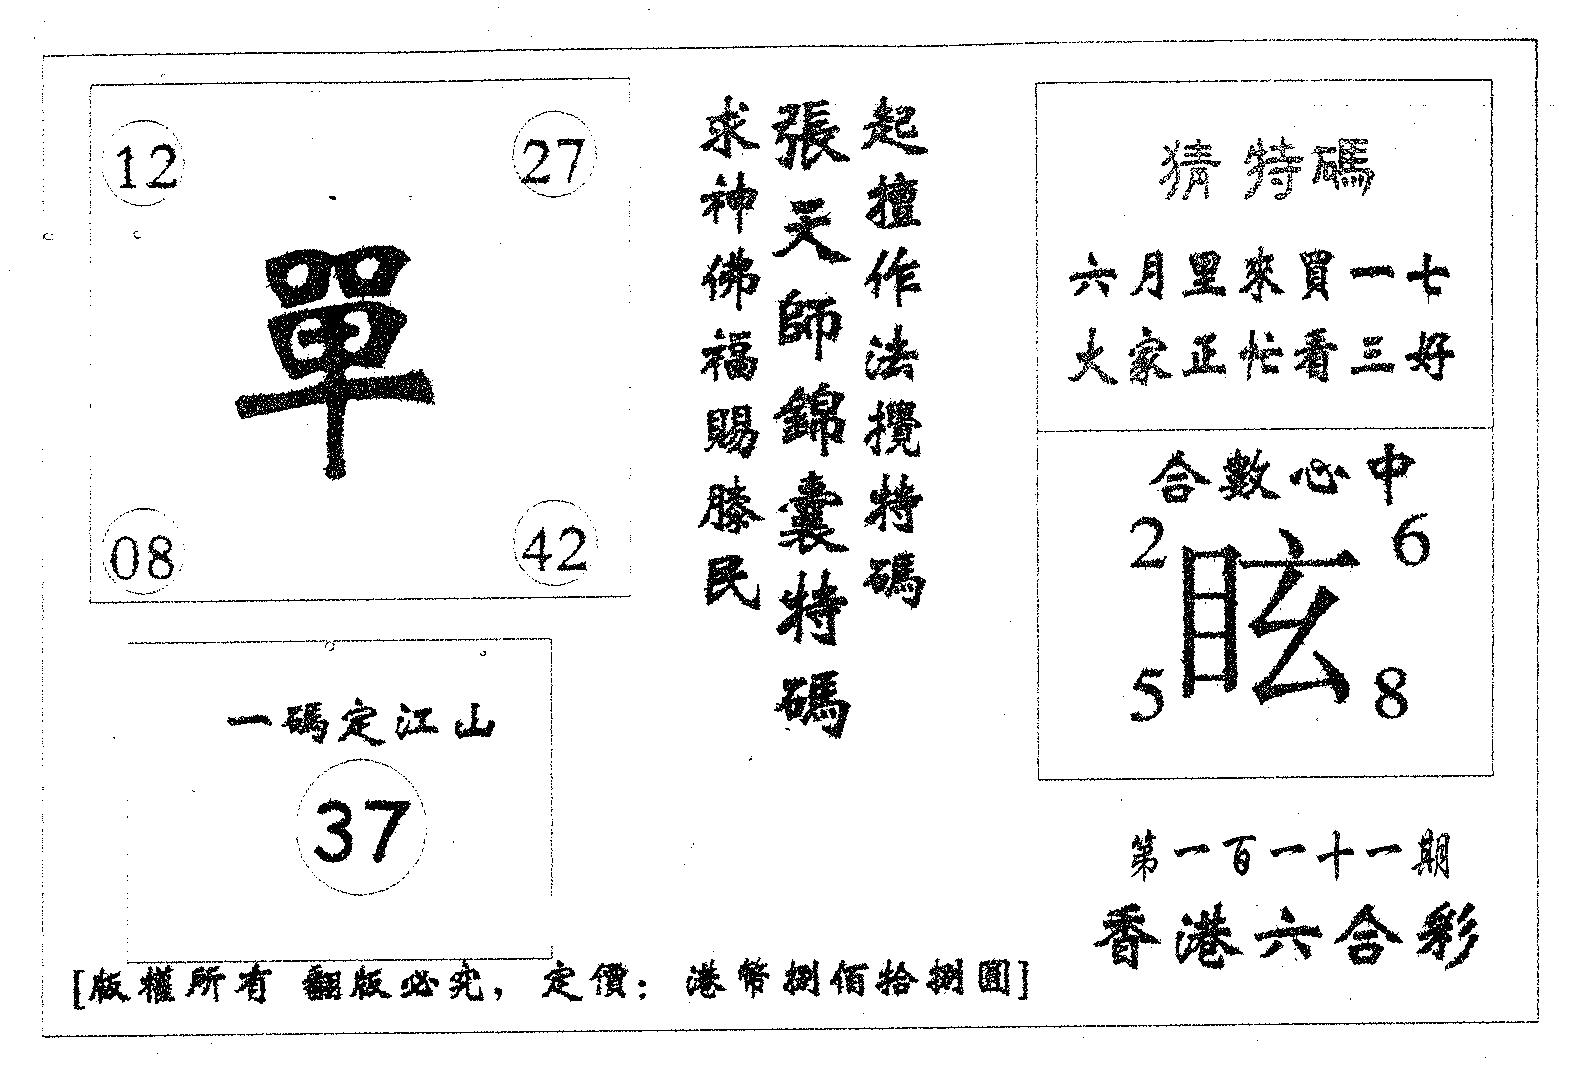 12
27
單
08
42
一碼定江山
37
起擅作法攪特碼
張天師錦囊特碼
求神佛福賜膝民
猜特碼
六月里來買一七
大家正忙看三好
合數心中
2
6
眩
5
8
第一百一十一期
香港六合彩
[版權所有 翻版必究，定價：港幣捌佰拾捌圓]